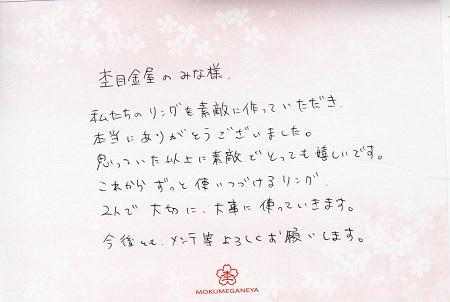 杢目金屋のみな様.
私たちのリングを素敵に作っていただき.
本当にありがとうございました。
思っていた以上に素敵でとっても嬉しいです。
これからずっと使いつづけるリング.
2人で大切に、大事に使っていきます。
今後とも、メンテ等よろしくお願いします。
MOKUMEGANEYA